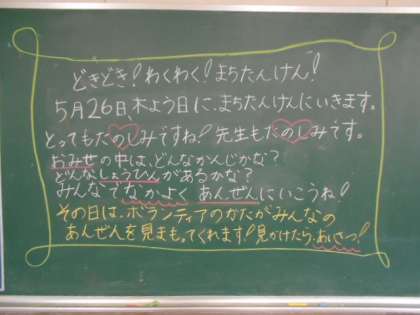 どきどき！わくわく！まちたんけん！
5月26日、木よう日に、まちたんけんにいきます。
とってもたのしみですね！先生もたのしみです。
おみせの中は、どんなかんじかな？
どんなしょうひんがあるかな？
みんなでなかよく あんぜんにいこうね！
その日は、ボランティアのかたがみんなの
あんぜんを見まもってくれます！見かけたら、あいさつ！